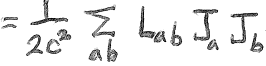 = 1/(2c²) Σ_ab L_ab J_a J_b